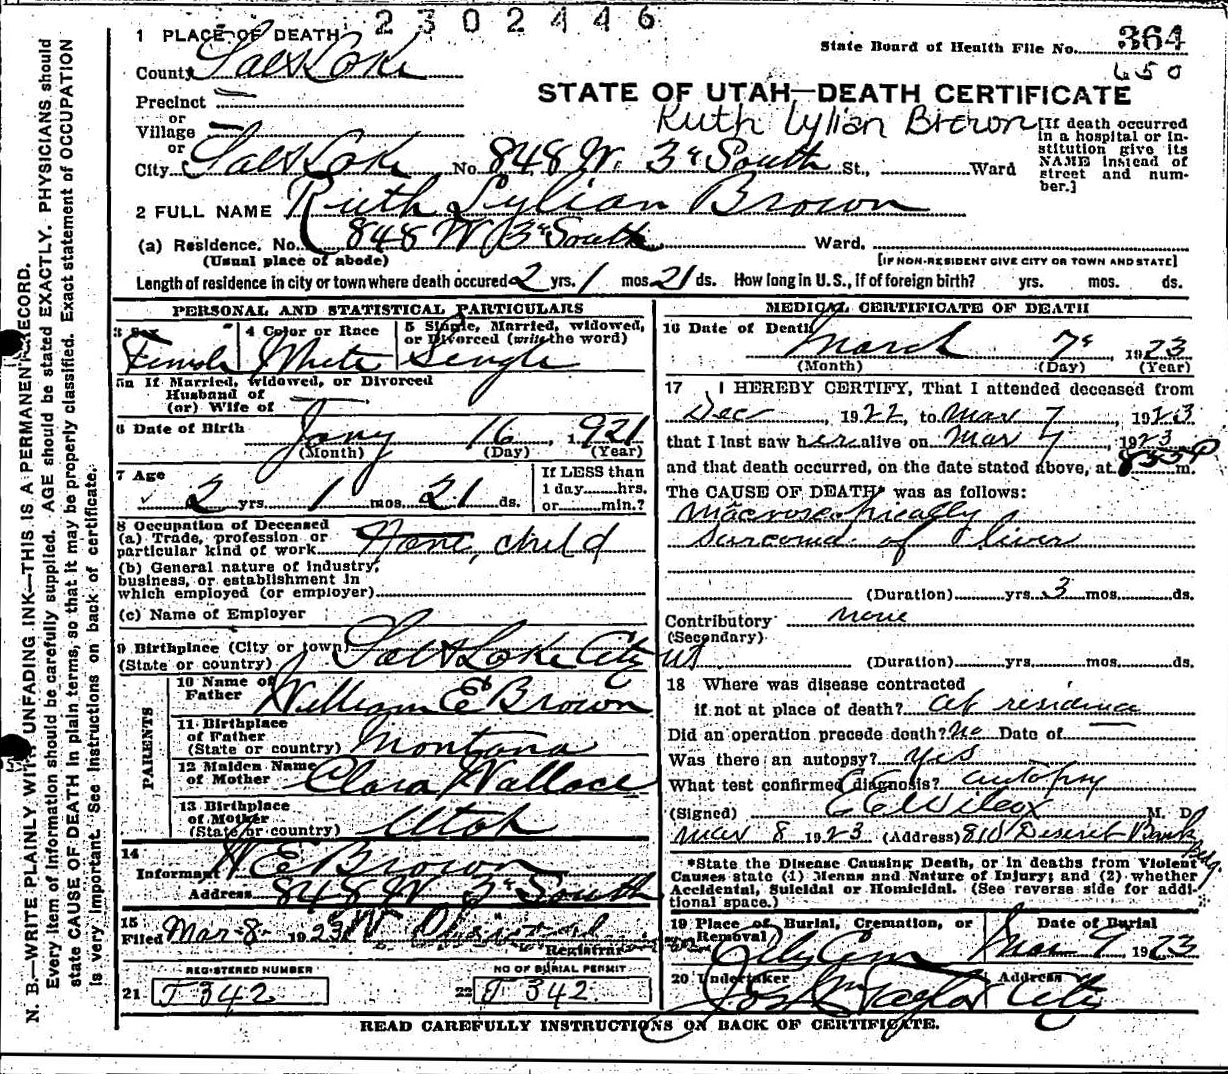 2302446
1 PLACE OF DEATH
State Board of Health File No. 364
County Salt Lake
650
STATE OF UTAH—DEATH CERTIFICATE
Precinct
or
Village
or
Ruth Lylian Brown
[If death occurred in a hospital or institution give its NAME instead of street and number.]
City Salt Lake No. 848 W. 3d South St., Ward
2 FULL NAME Ruth Lylian Brown
(a) Residence. No. 848 W 3d South Ward.
(Usual place of abode) [IF NON-RESIDENT GIVE CITY OR TOWN AND STATE]
Length of residence in city or town where death occured 2 yrs. 1 mos. 21 ds. How long in U.S., if of foreign birth? yrs. mos. ds.
PERSONAL AND STATISTICAL PARTICULARS
3 Sex
Female
4 Color or Race
White
5 Single, Married, widowed, or Divorced (write the word)
Single
5a If Married, widowed, or Divorced
Husband of
(or) Wife of
6 Date of Birth Jany 16, 1921
(Month) (Day) (Year)
7 Age
2 yrs. 1 mos. 21 ds.
If LESS than
1 day hrs.
or min.?
8 Occupation of Deceased
(a) Trade, profession or
particular kind of work None, child
(b) General nature of industry,
business, or establishment in
which employed (or employer)
(c) Name of Employer
9 Birthplace (City or town) Salt Lake City
(State or country) Ut
PARENTS
10 Name of
Father William E Brown
11 Birthplace
of Father
(State or country) Montana
12 Maiden Name
of Mother Clara Wallace
13 Birthplace
of Mother
(State or country) Utah
14
Informant W E Brown
Address 848 W 3d South
15
Filed Mar 8 1923 W
Registrar
REGISTERED NUMBER
21 J 342
NO OF BURIAL PERMIT
22 J 342
MEDICAL CERTIFICATE OF DEATH
16 Date of Death
March 7, 1923
(Month) (Day) (Year)
17 I HEREBY CERTIFY, That I attended deceased from
Dec, 1922, to Mar 7, 1923
that I last saw her alive on Mar 7, 1923
and that death occurred, on the date stated above, at 855 P m.
The CAUSE OF DEATH* was as follows:
Macroscopically
sarcoma of liver
(Duration) yrs. 3 mos. ds.
Contributory none
(Secondary)
(Duration) yrs. mos. ds.
18 Where was disease contracted
if not at place of death? at residence
Did an operation precede death? No Date of
Was there an autopsy? Yes
What test confirmed diagnosis? autopsy
(Signed) C E Wilcox M. D.
Mar 8 1923 (Address) 818 Deseret Bank Bldg.
*State the Disease Causing Death, or in deaths from Violent
Causes state (1) Menns and Nature of Injury; and (2) whether
Accidental, Suicidal or Homicidal. (See reverse side for addi-
tional space.)
19 Place of Burial, Cremation, or
Removal
City Cem
Date of Burial
Mar 9 1923
20 Undertaker
Jos Wm Taylor
Address
City
READ CAREFULLY INSTRUCTIONS ON BACK OF CERTIFICATE.
N. B.—WRITE PLAINLY WITH UNFADING INK—THIS IS A PERMANENT RECORD.
Every item of information should be carefully supplied. AGE should be stated EXACTLY. PHYSICIANS should
state CAUSE OF DEATH in plain terms, so that it may be properly classified. Exact statement of OCCUPATION
is very important. See instructions on back of certificate.